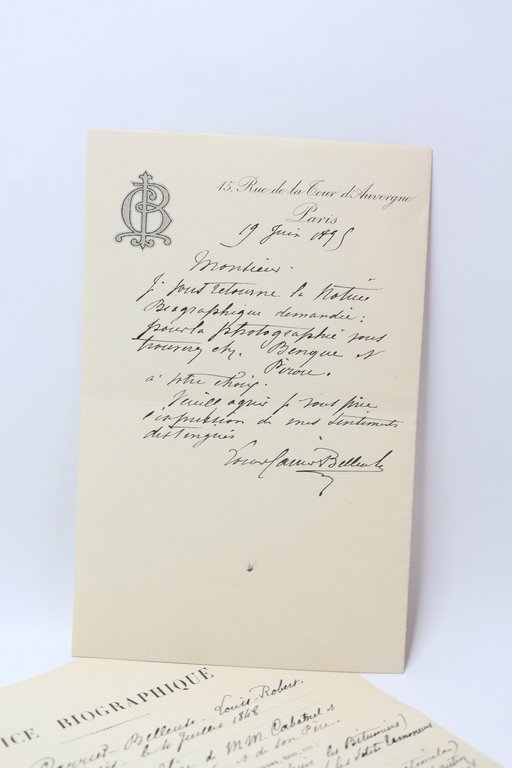 CB
15, Rue de la Tour d'Auvergne
Paris
19 Juin 1895
Monsieur
Je vous retourne la Notice
Biographique demandée;
pour la photographie vous
trouverez chz. Benque et
Pirou.
à votre choix.
Veuillez agréer je vous prie
l'expression de mes sentiments
distingués
Louis Carrier Belleuse
ICE BIOGRAPHIQUE
Carrier-Belleuse Louis-Robert.
le 4 Juillet 1848
de MM. Cabanel &
et de son Père.
les Bitumiers)
les Petits Ramoneurs